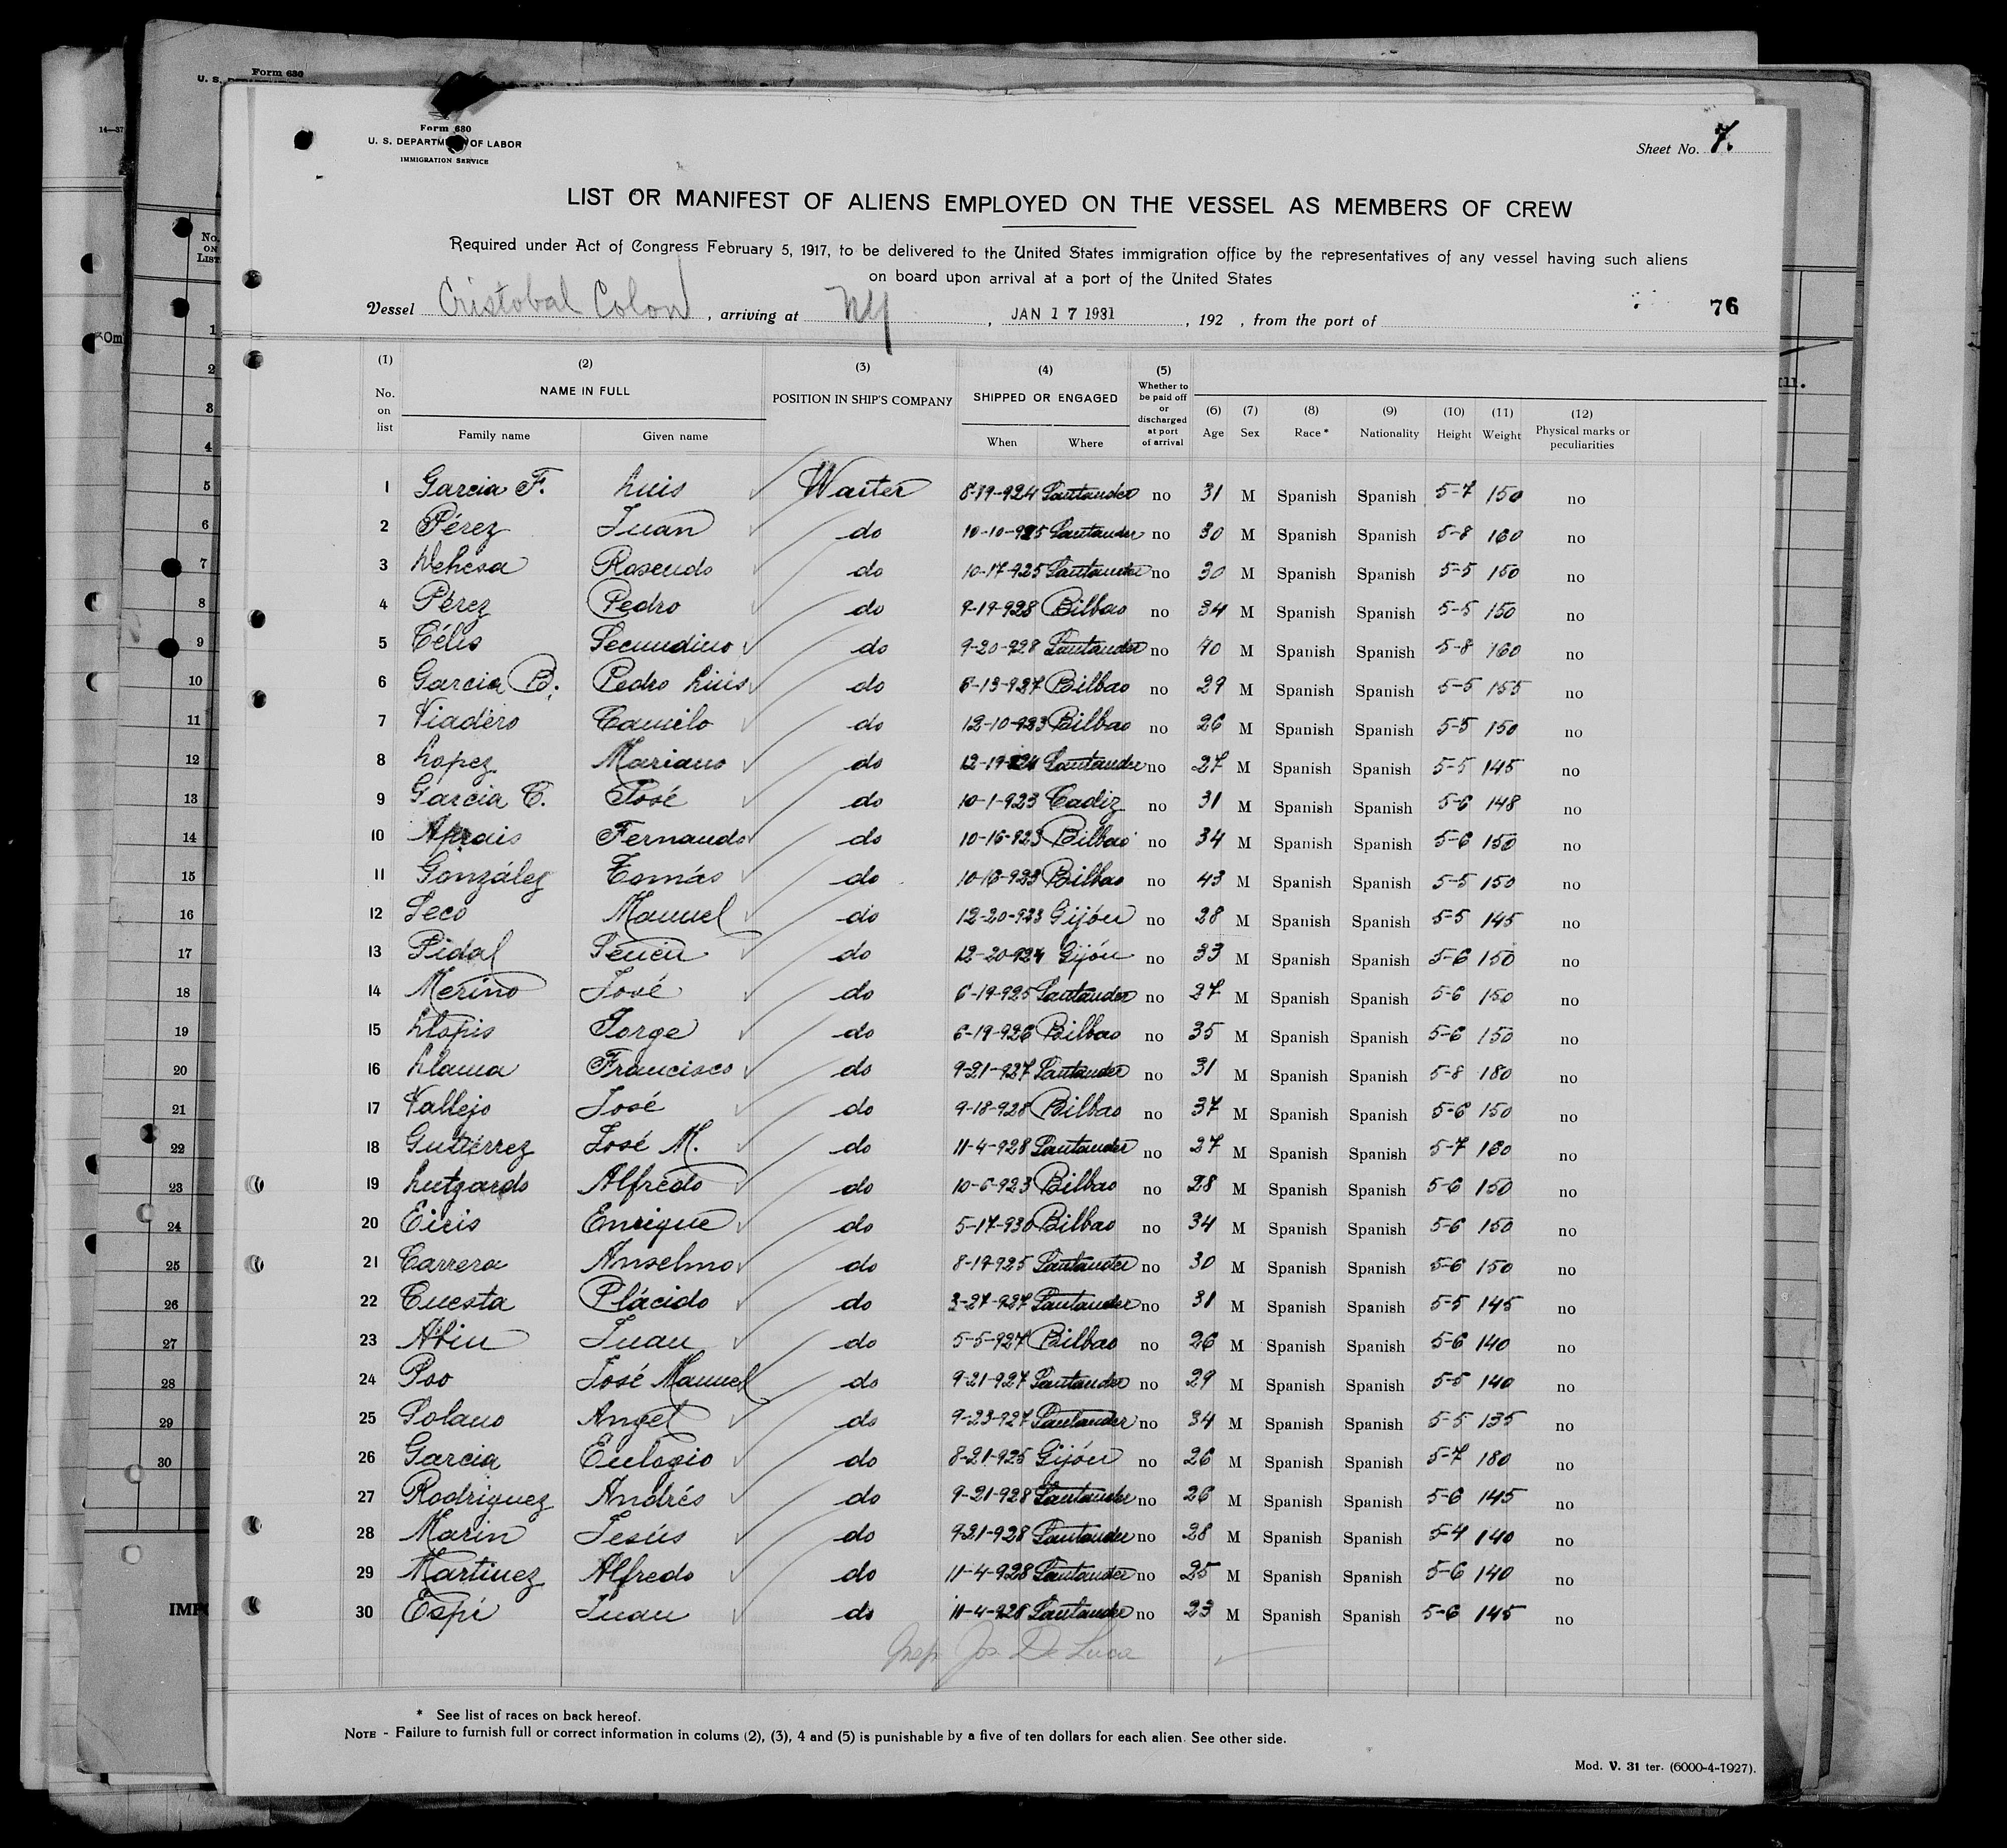 Form 630
U. S.
14—37
Form 680
U. S. DEPARTMENT OF LABOR
IMMIGRATION SERVICE
Sheet No. 7.
LIST OR MANIFEST OF ALIENS EMPLOYED ON THE VESSEL AS MEMBERS OF CREW
Required under Act of Congress February 5, 1917, to be delivered to the United States immigration office by the representatives of any vessel having such aliens
on board upon arrival at a port of the United States
76
Vessel Cristobal Colon, arriving at NY, JAN 17 1931, 192 , from the port of
(1) No. on list (2) NAME IN FULL Family name Given name (3) POSITION IN SHIP'S COMPANY (4) SHIPPED OR ENGAGED When Where (5) Whether to be paid off or discharged at port of arrival (6) Age (7) Sex (8) Race * (9) Nationality (10) Height (11) Weight (12) Physical marks or peculiarities
1 Garcia F. Luis Waiter 8-19-924 Santander no 31 M Spanish Spanish 5-7 150 no
2 Pérez Juan do 10-10-925 Santander no 30 M Spanish Spanish 5-8 160 no
3 Rosendo do 10-17-925 Santander no 30 M Spanish Spanish 5-5 150 no
4 Pérez Pedro do 9-19-928 Bilbao no 34 M Spanish Spanish 5-5 150 no
5 Célis Secundino do 9-20-928 Santander no 40 M Spanish Spanish 5-8 160 no
6 Garcia B. Pedro Luis do 6-13-927 Bilbao no 29 M Spanish Spanish 5-5 155 no
7 Viadero Camilo do 12-10-923 Bilbao no 26 M Spanish Spanish 5-5 150 no
8 Lopez Mariano do 12-19-924 Santander no 27 M Spanish Spanish 5-5 145 no
9 Garcia C. José do 10-1-923 Cadiz no 31 M Spanish Spanish 5-6 148 no
10 Aprais Fernando do 10-16-923 Bilbao no 34 M Spanish Spanish 5-6 150 no
11 González Tomás do 10-16-923 Bilbao no 43 M Spanish Spanish 5-5 150 no
12 Seco Manuel do 12-20-923 Gijón no 28 M Spanish Spanish 5-5 145 no
13 Pidal do 12-20-924 Gijón no 33 M Spanish Spanish 5-6 150 no
14 Merino José do 6-19-925 Santander no 27 M Spanish Spanish 5-6 150 no
15 Llopis Jorge do 6-19-926 Bilbao no 35 M Spanish Spanish 5-6 150 no
16 Llama Francisco do 9-21-927 Santander no 31 M Spanish Spanish 5-8 180 no
17 Vallejo José do 9-18-928 Bilbao no 37 M Spanish Spanish 5-6 150 no
18 Gutiérrez José M. do 11-4-928 Santander no 27 M Spanish Spanish 5-7 160 no
19 Lutgardo Alfredo do 10-6-923 Bilbao no 28 M Spanish Spanish 5-6 150 no
20 Eiris Enrique do 5-17-930 Bilbao no 34 M Spanish Spanish 5-6 150 no
21 Carrera Anselmo do 8-19-925 Santander no 30 M Spanish Spanish 5-6 150 no
22 Cuesta Plácido do 3-27-927 Santander no 31 M Spanish Spanish 5-5 145 no
23 Abin Juan do 5-5-927 Bilbao no 26 M Spanish Spanish 5-6 140 no
24 Poo José Manuel do 9-21-927 Santander no 29 M Spanish Spanish 5-5 140 no
25 Solano Angel do 9-23-927 Santander no 34 M Spanish Spanish 5-5 135 no
26 Garcia Eulogio do 8-21-925 Gijón no 26 M Spanish Spanish 5-7 180 no
27 Rodriguez Andrés do 9-21-928 Santander no 26 M Spanish Spanish 5-6 145 no
28 Marin Jesús do 9-21-928 Santander no 28 M Spanish Spanish 5-4 140 no
29 Martinez Alfredo do 11-4-928 Santander no 25 M Spanish Spanish 5-6 140 no
30 Espi Juan do 11-4-928 Santander no 23 M Spanish Spanish 5-6 145 no
Insp. Jos. De Luca
* See list of races on back hereof.
NOTE - Failure to furnish full or correct information in colums (2), (3), 4 and (5) is punishable by a five of ten dollars for each alien. See other side.
Mod. V. 31 ter. (6000-4-1927).